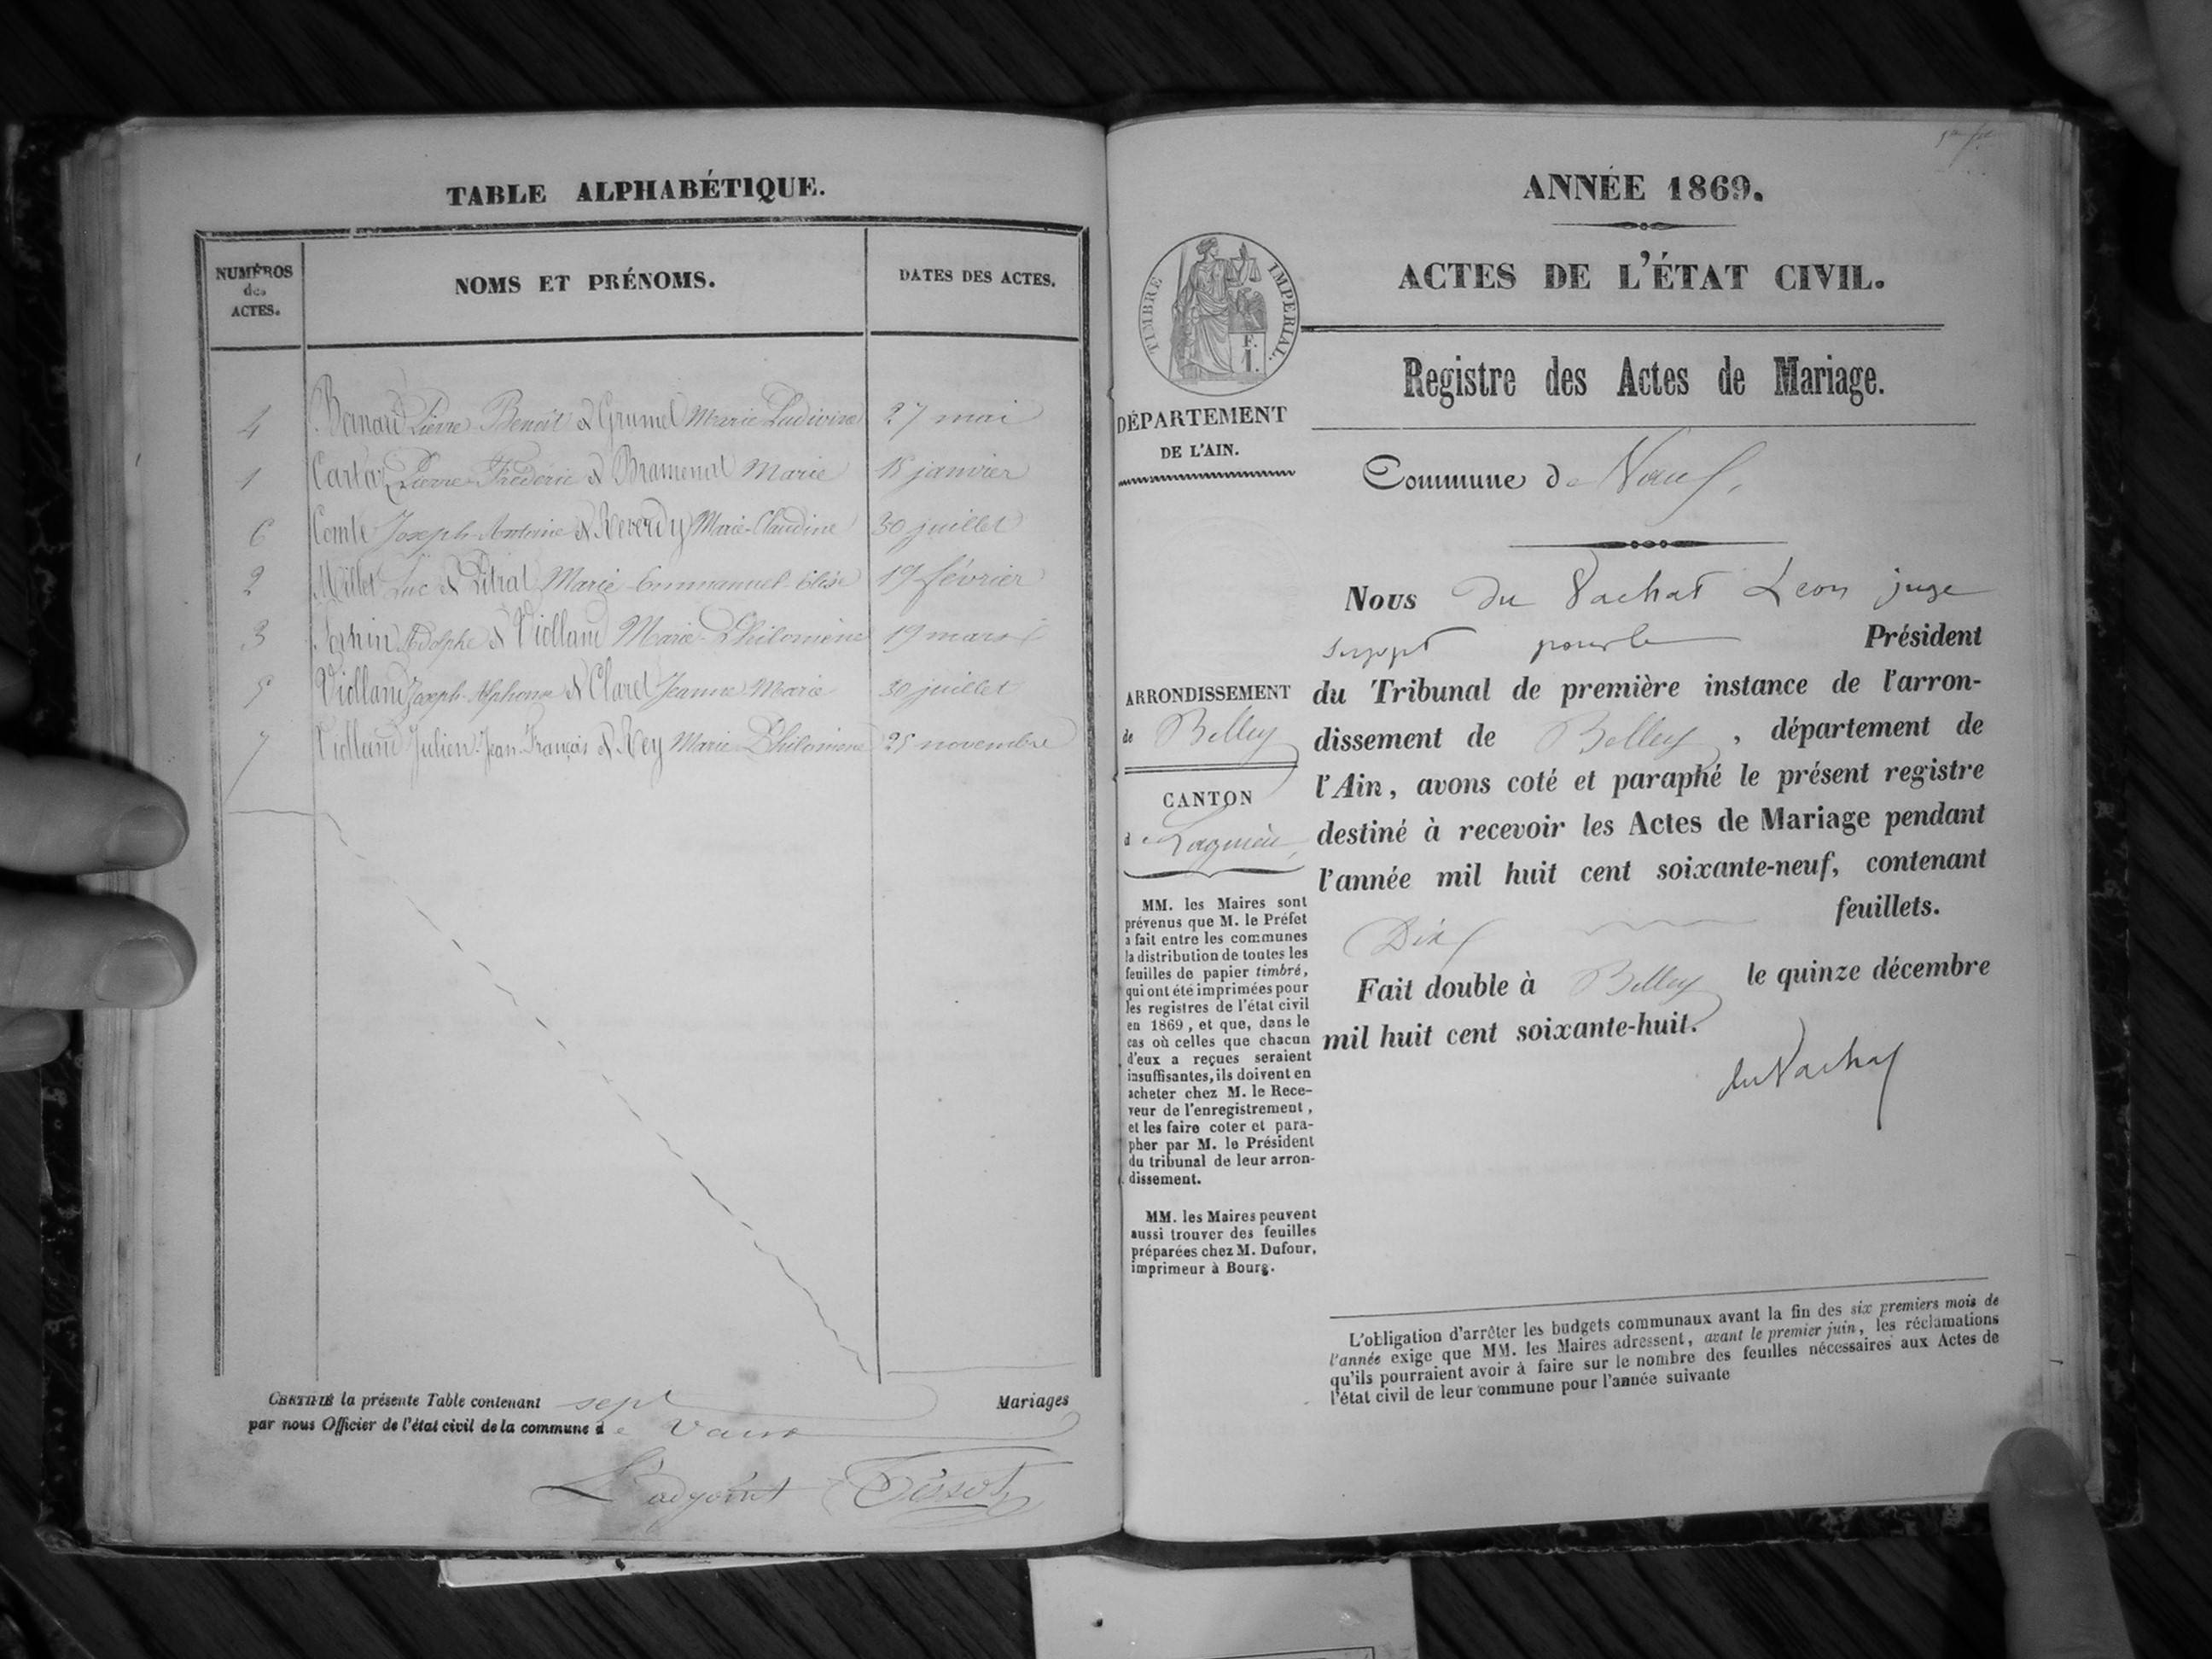 TABLE ALPHABÉTIQUE.
NUMÉROS
des
ACTES.
NOMS ET PRÉNOMS.
DATES DES ACTES.
4 Bernard Pierre Benoit & Grumel Marie Ludivine 27 mai
1 Pierre Frédéric & Marie 18 janvier
6 Comte Joseph-Antoine & Reverdy Marie-Claudine 30 juillet
2 Millet Luc & Marie Emmanuel-Elise 19 février
3 Adolphe & Violland Marie-Philomène 19 mars
5 Violland Joseph-Alphonse & Claret Jeanne Marie 30 juillet
7 Violland Julien Jean François & Rey Marie Philomène 25 novembre
CERTIFIÉ la présente Table contenant sept Mariages
par nous Officier de l'état civil de la commune de Vaux
L'adjoint Tissot
ANNÉE 1869.
ACTES DE L'ÉTAT CIVIL.
TIMBRE IMPERIAL.
F.
1.
Registre des Actes de Mariage.
DÉPARTEMENT
DE L'AIN.
Commune de Vaux,
Nous du Vachat Leon juge
suppt pour le Président
du Tribunal de première instance de l'arron-
dissement de Belley, département de
l'Ain, avons coté et paraphé le présent registre
destiné à recevoir les Actes de Mariage pendant
l'année mil huit cent soixante-neuf, contenant
Dix feuillets.
Fait double à Belley le quinze décembre
mil huit cent soixante-huit.
du Vachat
ARRONDISSEMENT
de Belley
CANTON
de Lagnieu,
MM. les Maires sont
prévenus que M. le Préfet
a fait entre les communes
la distribution de toutes les
feuilles de papier timbré,
qui ont été imprimées pour
les registres de l'état civil
en 1869, et que, dans le
cas où celles que chacun
d'eux a reçues seraient
insuffisantes, ils doivent en
acheter chez M. le Rece-
veur de l'enregistrement,
et les faire coter et para-
pher par M. le Président
du tribunal de leur arron-
dissement.
MM. les Maires peuvent
aussi trouver des feuilles
préparées chez M. Dufour,
imprimeur à Bourg.
L'obligation d'arrêter les budgets communaux avant la fin des six premiers mois de
l'année exige que MM. les Maires adressent, avant le premier juin, les réclamations
qu'ils pourraient avoir à faire sur le nombre des feuilles nécessaires aux Actes de
l'état civil de leur commune pour l'année suivante